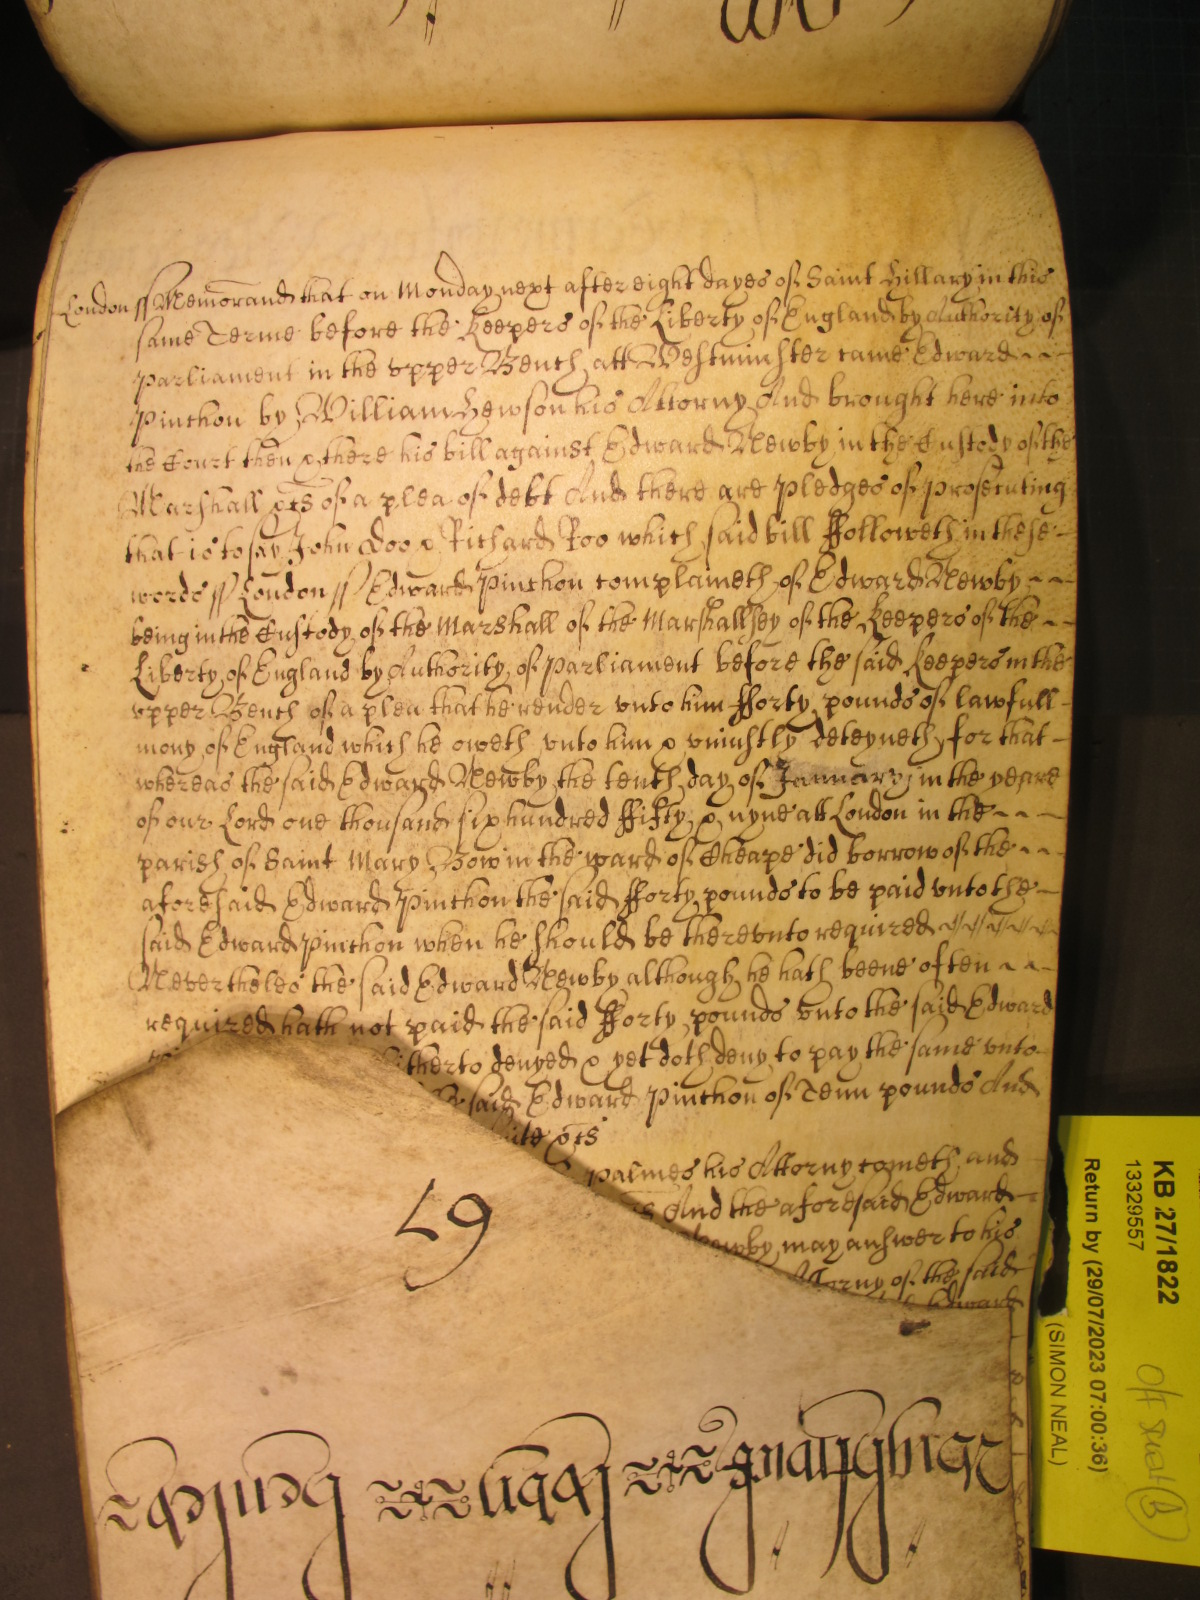 London ss Memorand that on Monday next after eight dayes of Saint Hillary in this
same Terme before the Keepers of the Liberty of England by Authority of
Parliament in the vpper Bench att Westminster came Edward
Pinchon by William Hewson his Attorny And brought here into
the Court then & there his bill against Edward Newby in the Custody of the
Marshall &c of a plea of debt And there are pledges of prosecuting
that is to say John Doo & Richard Roo which said bill ffolloweth in these
words ss London ss Edward Pinchon complaineth of Edward Newby
being in the Custody of the Marshall of the Marshallsey of the Keepers of the
Liberty of England by Authority of Parliament before the said Keepers in the
vpper Bench of a plea that he render vnto him fforty pounds of lawfull
mony of England which he oweth vnto him & vniustly deteyneth for that
whereas the said Edward Newby the tenth day of January in the yeare
of our Lord one thousand six hundred ffifty & nyne att London in the
parish of Saint Mary Bow in the ward of Cheape did borrow of the
aforesaid Edward Pinchon the said fforty pounds to be paid vnto the
said Edward Pinchon when he should be therevnto required
Nevertheles the said Edward Newby although he hath beene often
required hath not paid the said fforty pounds vnto the said Edward
itherto denyed & yet doth deny to pay the same vnto
said Edward Pinchon of Tenn pounds And
uite &c
Palmes his Attorny cometh and
And the aforesaid Edward
Newby may answer to his
Attorny of the said
Edward
67
KB 27/1822
13329557
Return by (29/07/2023 07:00:36)
(SIMON NEAL)